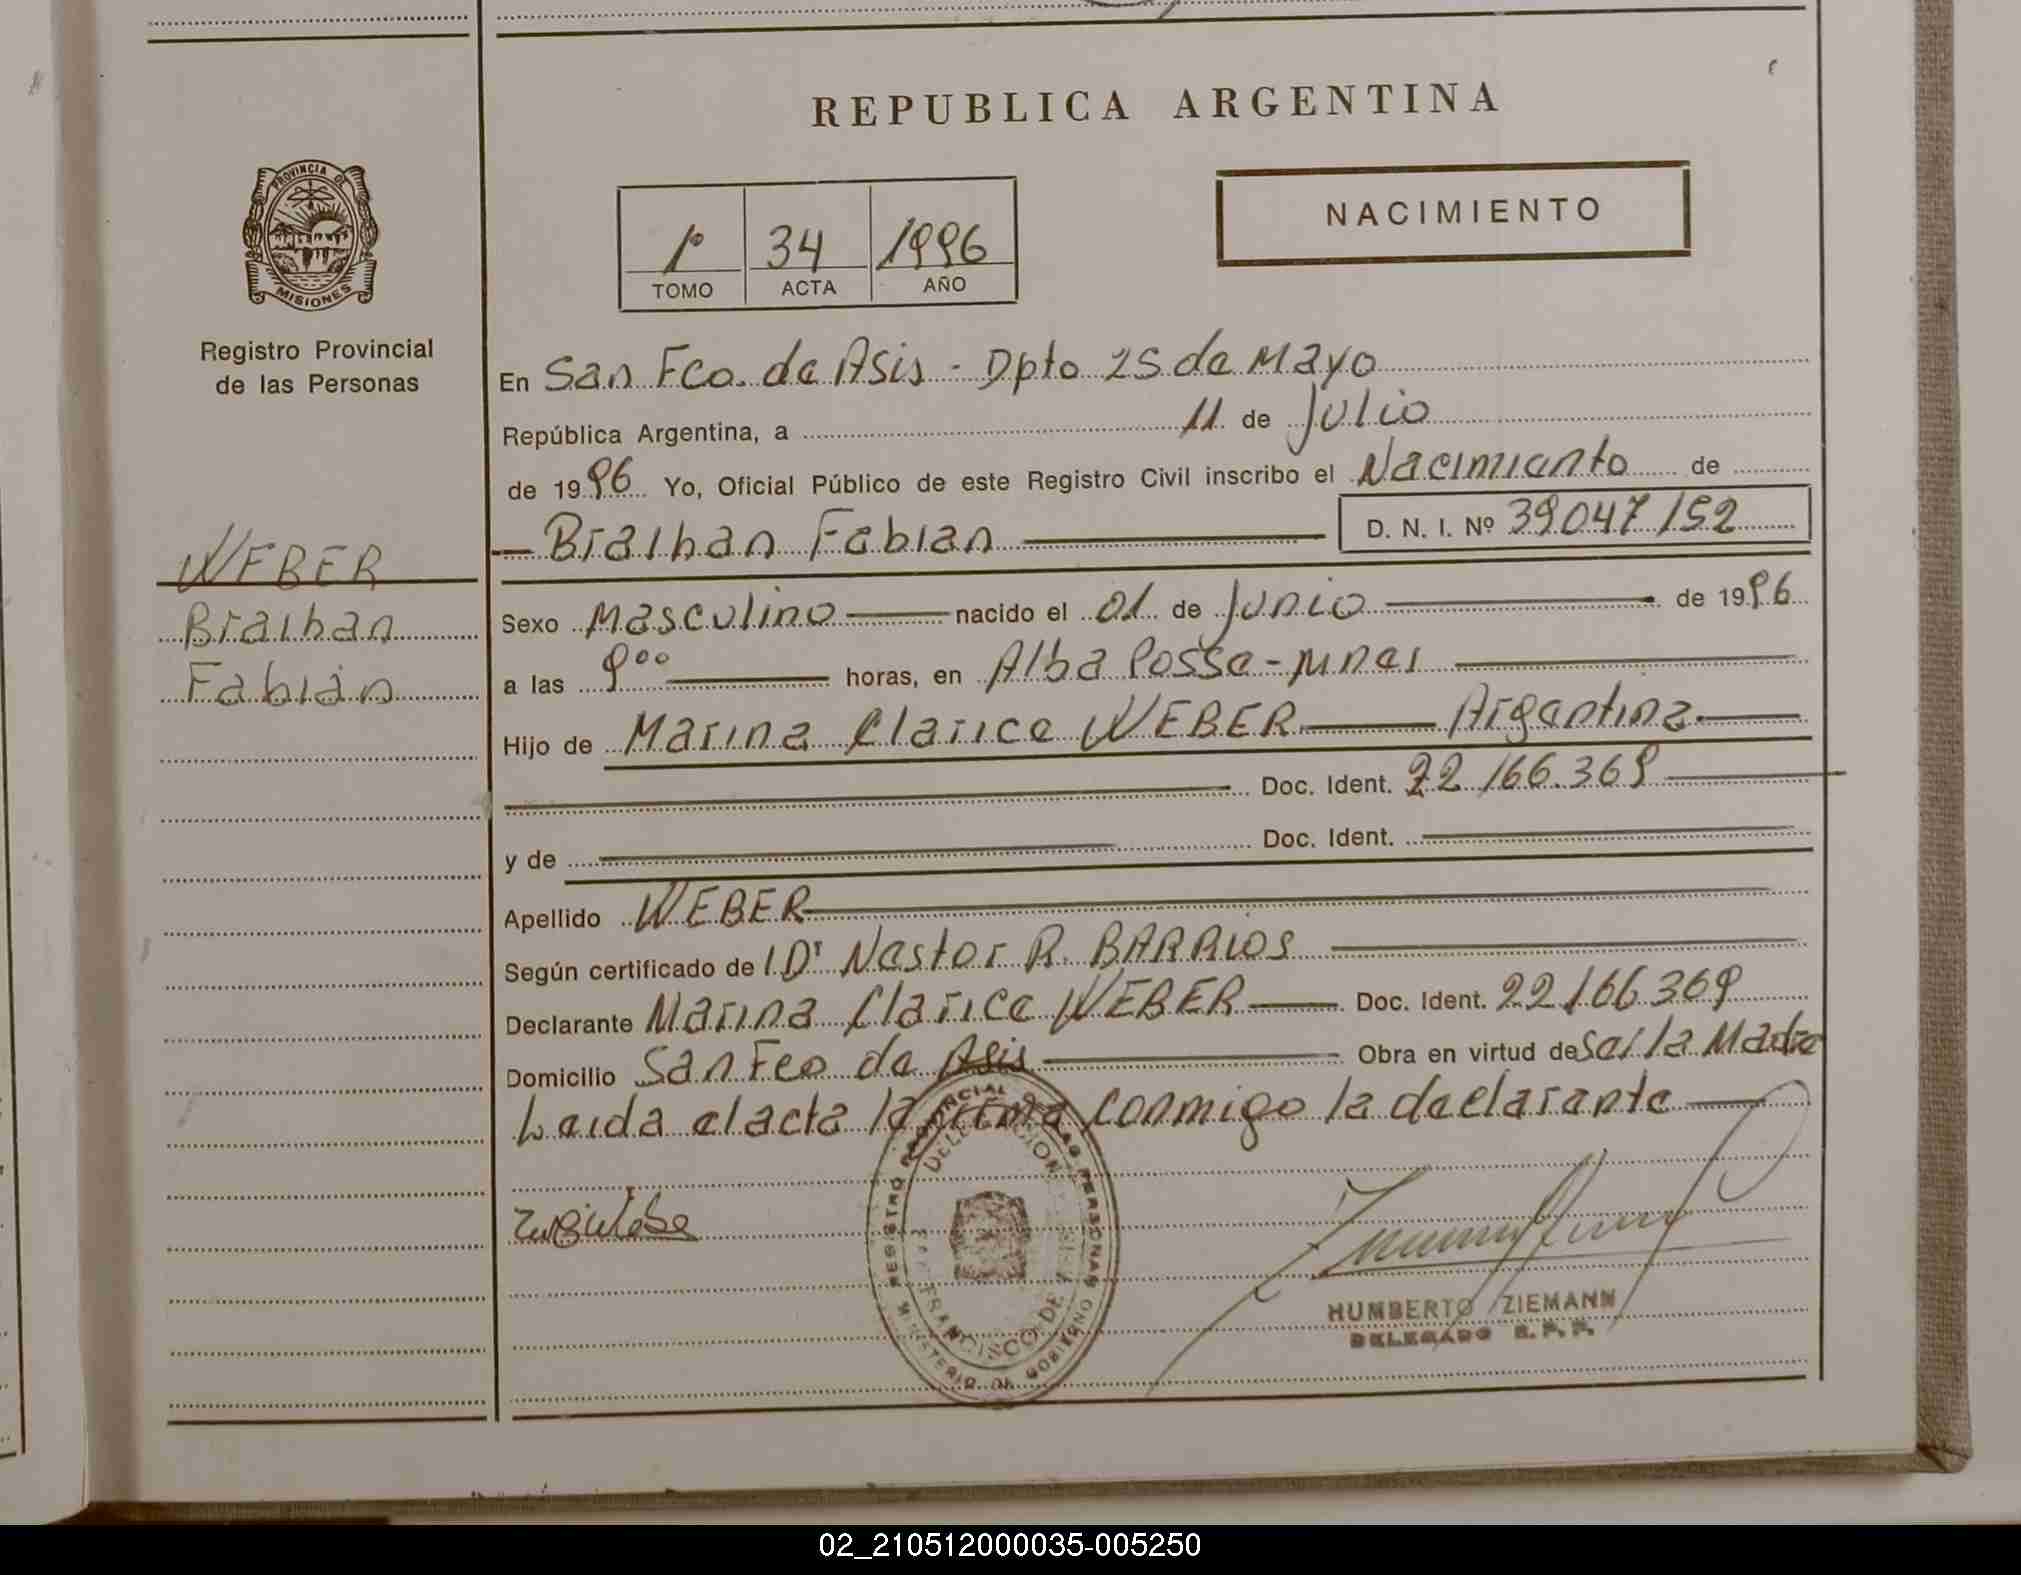 REPUBLICA ARGENTINA
PROVINCIA DE
MISIONES
Registro Provincial
de las Personas
1º 34 1996
TOMO ACTA AÑO
NACIMIENTO
En San Fco. de Asis - Dpto 25 de Mayo
República Argentina, a 11 de Julio
de 1996 Yo, Oficial Público de este Registro Civil inscribo el Nacimiento de
Braihan Fabian D. N. I. Nº 39047152
WEBER
Braihan
Fabián
Sexo Masculino nacido el 01 de Junio de 1996
a las 9ºº horas, en Alba Posse - Mnes
Hijo de Marina Clarice WEBER Argentina
Doc. Ident. 22.166.369
y de Doc. Ident.
Apellido WEBER
Según certificado del Dr Nestor R. BARRIOS
Declarante Marina Clarice WEBER Doc. Ident. 22166369
Domicilio San Fco de Asis Obra en virtud de Ser la Madre
Leida el acta la firma conmigo la declarante
REGISTRO PROVINCIAL DE LAS PERSONAS
MINISTERIO DE GOBIERNO
HUMBERTO ZIEMANN
DELEGADO R. P. P.
02_210512000035-005250